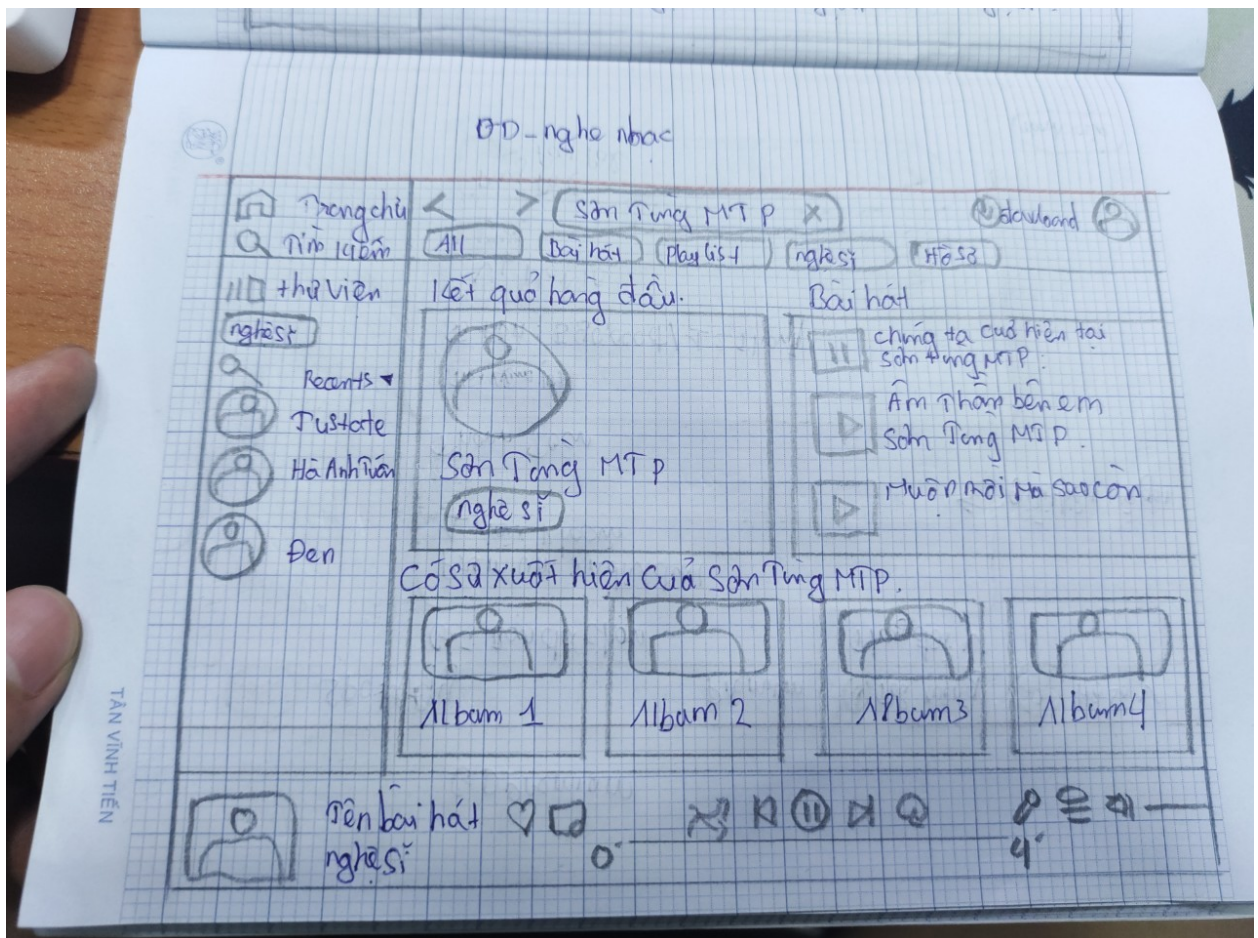 DD_nghe nhạc
Trang chủ
Tìm kiếm
thư viện
nghệ sĩ
Recents
Justate
Hà Anh Tuấn
Đen
< > Sơn Tùng MTP X
download
All Bài hát Playlist nghệ sĩ Hồ sơ
Kết quả hàng đầu.
Sơn Tùng MTP
nghệ sĩ
Bài hát
chúng ta của hiện tại
Sơn tùng MTP.
Âm Thầm bên em
Sơn Tùng MTP.
Muộn rồi Mà sao còn
Có sự xuất hiện của Sơn Tùng MTP.
Album 1
Album 2
Album 3
Album 4
Tên bài hát
nghệ sĩ
0'
4'
TÂN VĨNH TIẾN